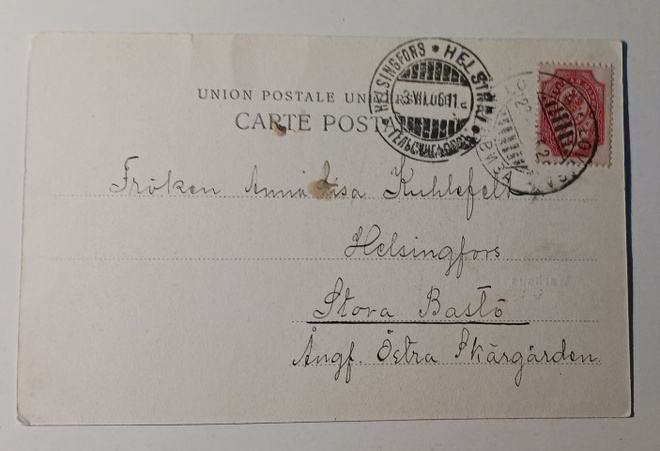 UNION POSTALE
CARTE
HELSINGFORS * HELSINKI
3.VI.06.11
Fröken Anna Lisa Kuhlefelt
Helsingfors
Stora Bastö
Ångf. Östra Skärgården.